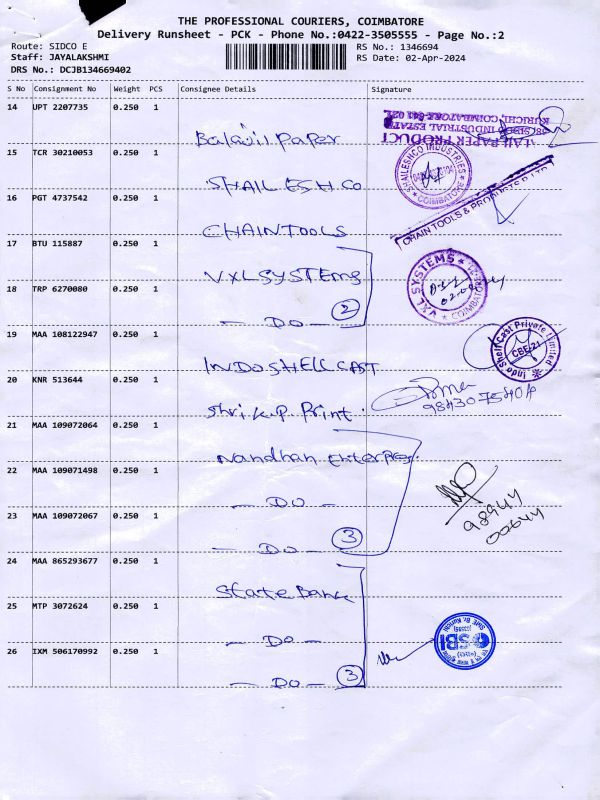 THE PROFESSIONAL COURIERS, COIMBATORE
Delivery Runsheet - PCK - Phone No.:0422-3505555 - Page No.:2
Route: SIDCO E RS No.: 1346694
Staff: JAYALAKSHMI RS Date: 02-Apr-2024
DRS No.: DCJB134669402
S No Consignment No Weight PCS Consignee Details Signature
14 UPT 2207735 0.250 1
Paper
LAJI PAPER PRODUCT
INDUSTRIAL ESTATE
KURICHI, COIMBATORE-641 021
15 TCR 30210053 0.250 1
SHAILESH CO
SHAILESHCO INDUSTRIES
COIMBATORE
16 PGT 4737542 0.250 1
CHAINTOOLS
CHAIN TOOLS & PRODUCTS
17 BTU 115887 0.250 1
VXL SYSTEMS
VXL SYSTEMS
18 TRP 6270080 0.250 1
- DO - 2
19 MAA 108122947 0.250 1
INDOSHELL CAST
Indo Shell Cast Private Limited
CBE-21
20 KNR 513644 0.250 1
Shri K.P. Print.
9843075404
21 MAA 109072064 0.250 1
Nandhan Enterprises.
22 MAA 109071498 0.250 1
- DO -
98944
00644
23 MAA 109072067 0.250 1
- DO - 3
24 MAA 865293677 0.250 1
State Bank
25 MTP 3072624 0.250 1
- DO -
SBI
26 IXM 506170992 0.250 1
- DO - 3